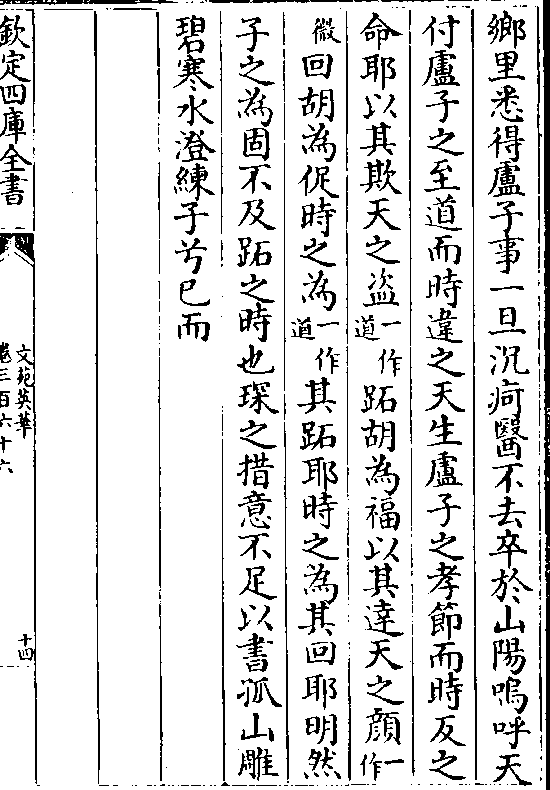 鄉里悉得盧子事一旦沉痾醫不去卒於山陽嗚呼天
付盧子之至道而時違之天生盧子之孝節而時反之
命耶以其欺天之盜一作道跖胡為福以其達天之顏一作
微回胡為促時之為一作道其跖耶時之為其回耶明然
子之為固不及跖之時也琛之措意不足以書孤山雕
碧寒水澄練子兮已而
欽定四庫全書
文苑英華
卷三百六十六
十四